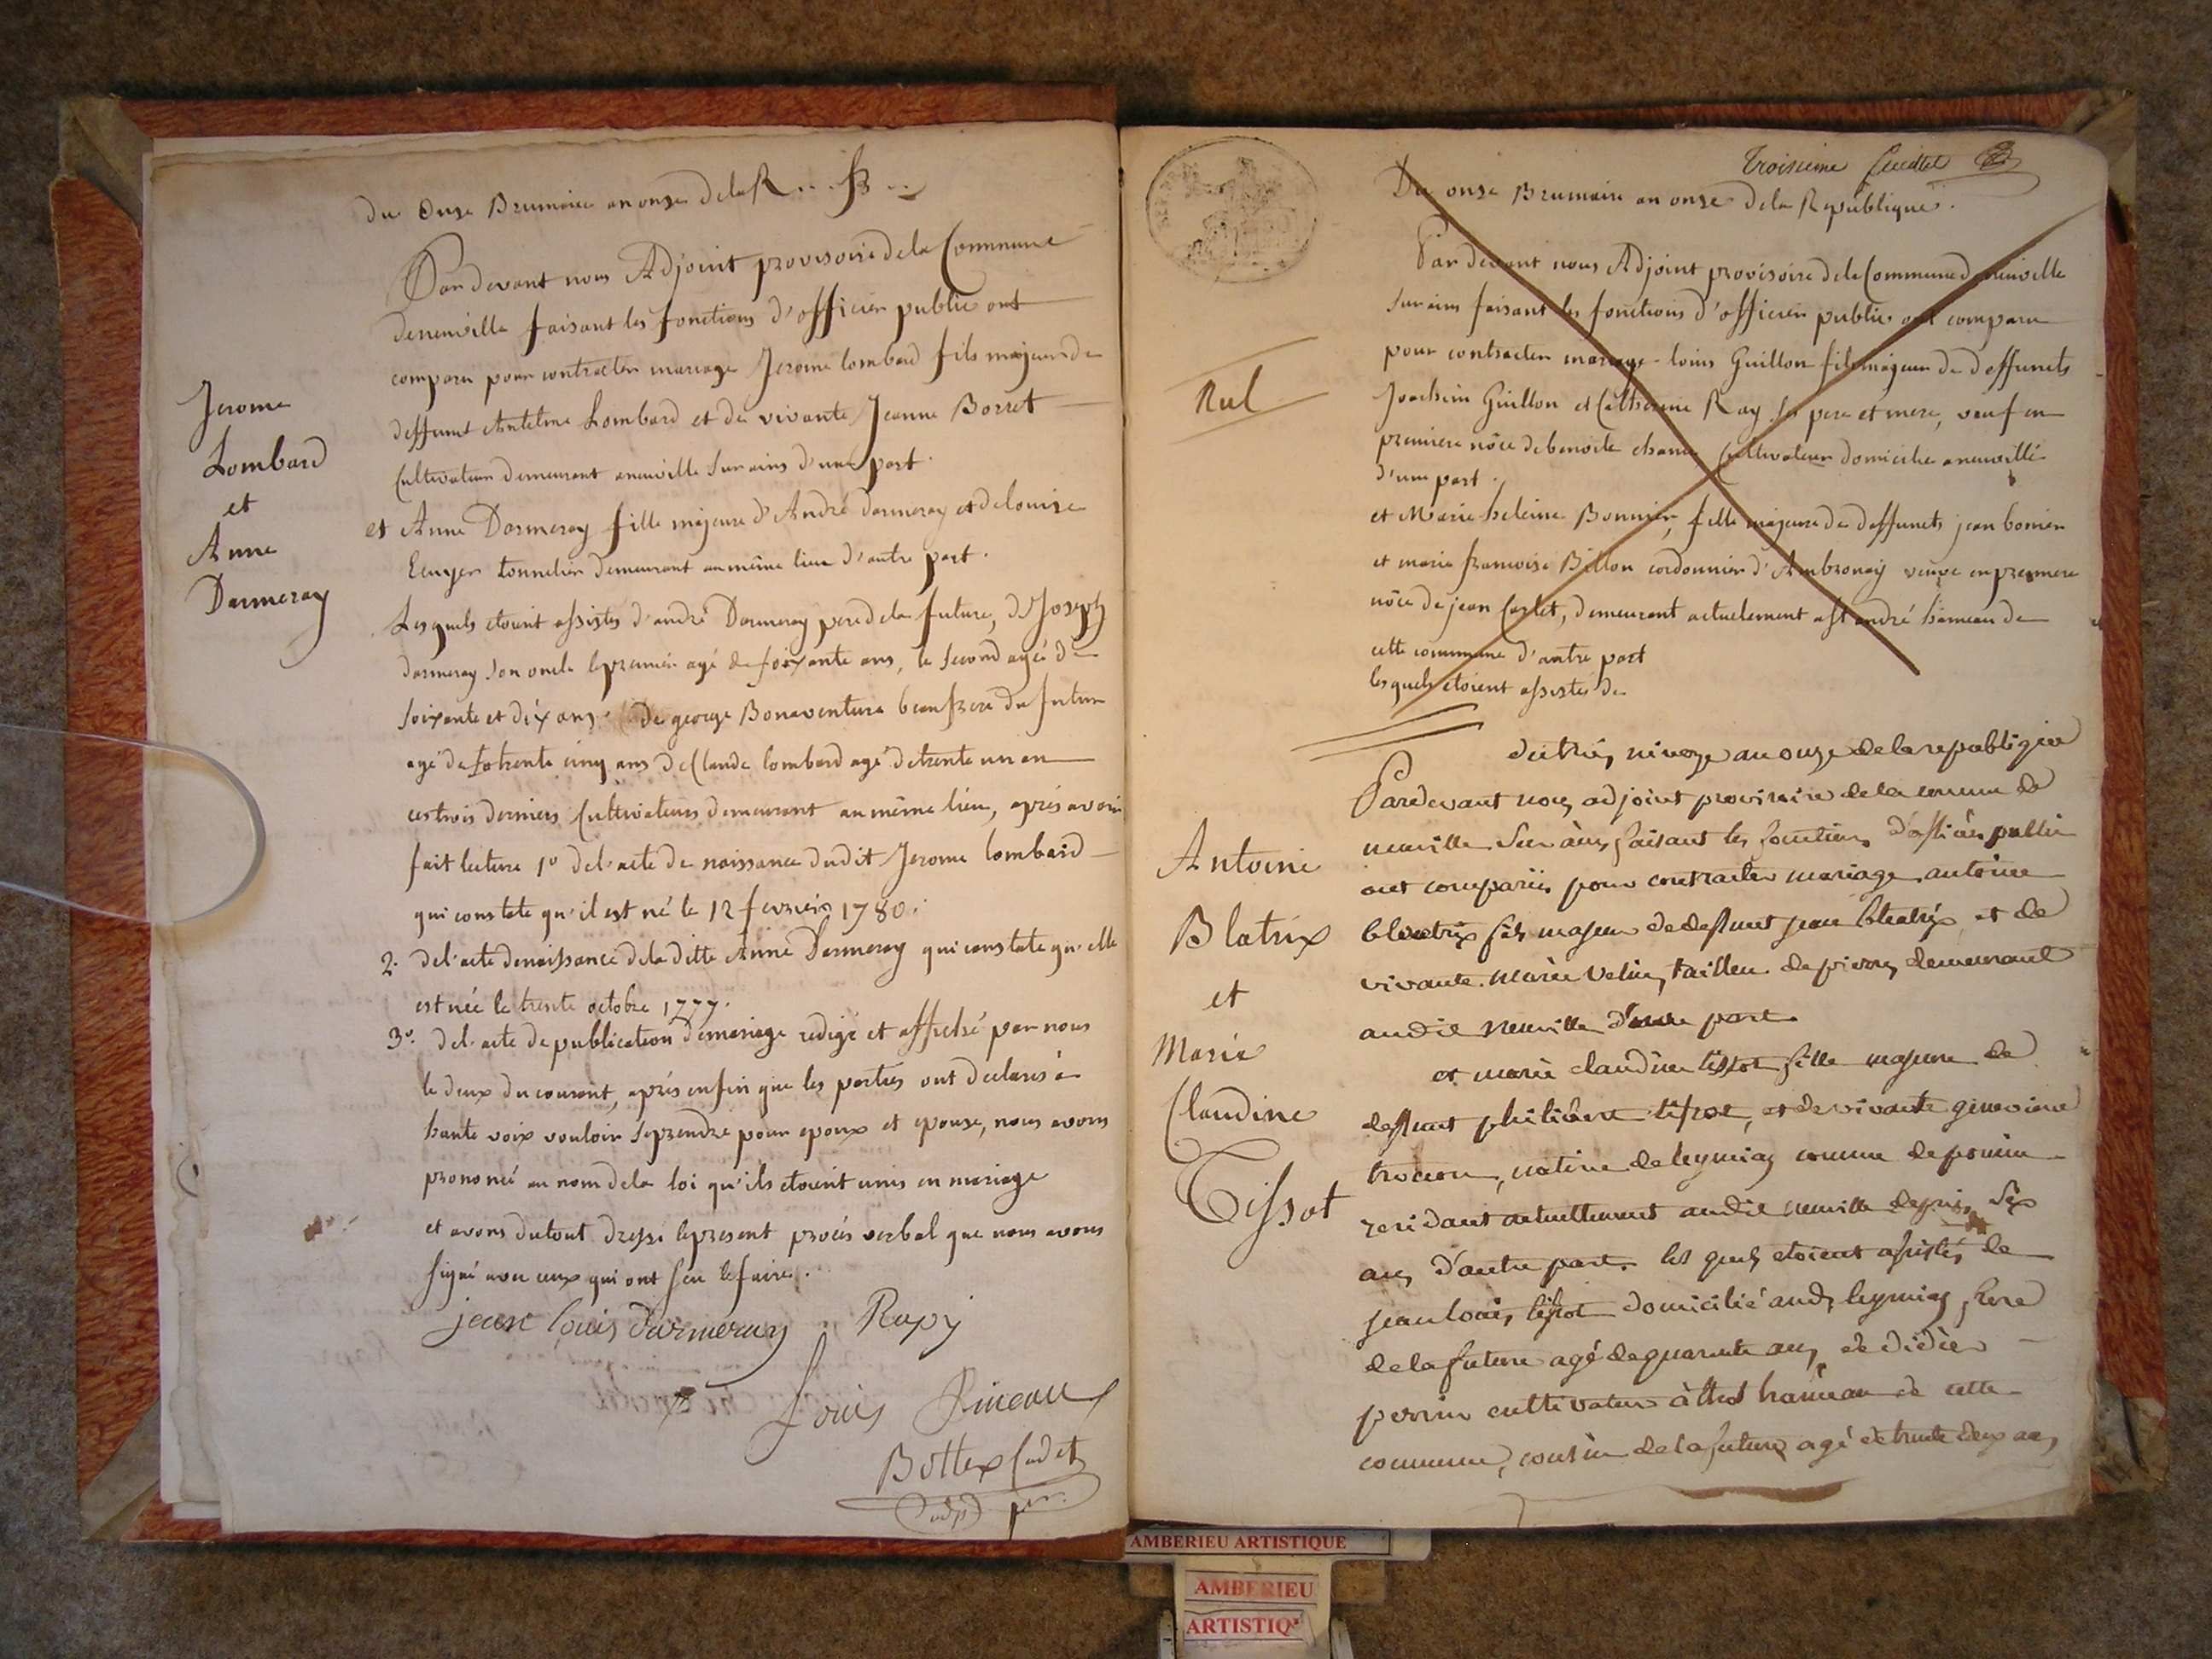 du Onze Brumaire an onze de la R...
Jerome
Lombard
et
Anne
Darmeray
Par devant nous Adjoint provisoire de la Commune
de neuville faisant les fonctions d'officier public ont
comparu pour contracter mariage Jerome lombard fils majeur de
deffunt Antelme Lombard et de vivante Jeanne Borret
Cultivateur demeurant a neuville sur ains d'une part.
et Anne Darmeray fille majeure d'André darmeray et de louise
Ecuyer tonnelier demeurant au même lieu d'autre part.
Lesquels etoient assistés d'andré Darmeray pere de la future, de Joseph
darmeray son oncle le premier agé de soixante ans, le second agé de
soixante et dix ans de george Bonaventure beaufrere du futur
agé de trente cinq ans de Claude lombard agé de trente un an
ces trois derniers Cultivateurs demeurant au même lieu, après avoir
fait lecture 1º de l'acte de naissance dudit Jerome lombard
qui constate qu'il est né le 12 fevrier 1780.
2º de l'acte de naissance de la ditte Anne Darmeray qui constate qu'elle
est née le trente octobre 1777.
3º. de l'acte de publication de mariage redigé et affiché par nous
le deux du courant, après enfin que les parties ont declarés à
haute voix vouloir se prendre pour epoux et epouse, nous avons
prononcé au nom de la loi qu'ils etoient unis en mariage
et avons du tout dressé le present procès verbal que nous avons
signé avec ceux qui ont scu le faire.
jean louis darmeray Rupy
Louis Pineau
Bottex Cadet
adjt pr.
troisieme feuillet
Du onze Brumaire an onze de la Republique.
Nul
Par devant nous Adjoint provisoire de la Commune de neuville
sur ains faisant les fonctions d'officier public ont comparu
pour contracter mariage louis Guillon fils majeur de deffunts
Joachim Guillon et Catherine Ray ses pere et mere, veuf en
premiere nôce de benoite Cultivateur domicilié a neuville
d'une part.
et Marie heleine Bonnier, fille majeure de deffunts jean bonier
et marie francoise Billon cordonnier d'Ambronay veuve en premiere
nôce de jean Carlet, demeurant actuelement a st andré hameau de
cette commune d'autre part
lesquels etoient assistés de
Antoine
Blatrix
et
Marie
Claudine
Tissot
du trois nivoze an onze de la republique
Pardevant nous adjoint provisoire de la commune de
neuville sur ains faisant les fonctions d'officier public
ont comparus pour contracter mariage antoine
bleatrix fils majeur de deffunt jean bleatrix et de
vivante marie Velin, tailleur de pierres demeurant
audit neuville d'une part
et marie claudine tissot fille majeure de
deffunt philibert tissot, et de vivante genevieve
trocon, native de leymiaz commune de poncin
residant actuellement audit neuville depuis six
ans d'autre part. les quels etoient assistés de
jean louis tissot domicilié aud. leymiaz frere
de la future agé de quarante ans et de didier
perrin cultivateur à thol hameau de cette
commune, cousin de la future agé de trente deux ans
AMBERIEU ARTISTIQUE
AMBERIEU
ARTISTIQ